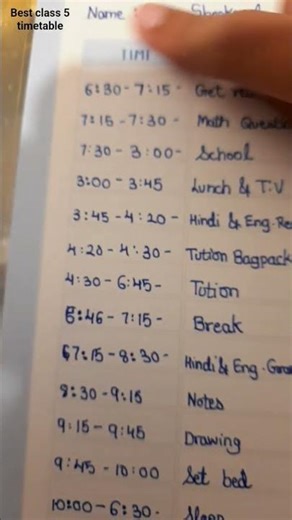 Best class 5
timetable
Name :
TIME
6:30-7:15- Get
7:15-7:30- Math
7:30-3:00- School
3:00-3:45 Lunch & T.V
3:45-4:20- Hindi & Eng.
4:20-4:30- Tution Bagpack
4:30-6:45- Tution
6:46-7:15- Break
7:15-8:30- Hindi & Eng.
8:30-9:15 Notes
9:15-9:45 Drawing
9:45-10:00 Set bed
10:00-6:30- Sleep